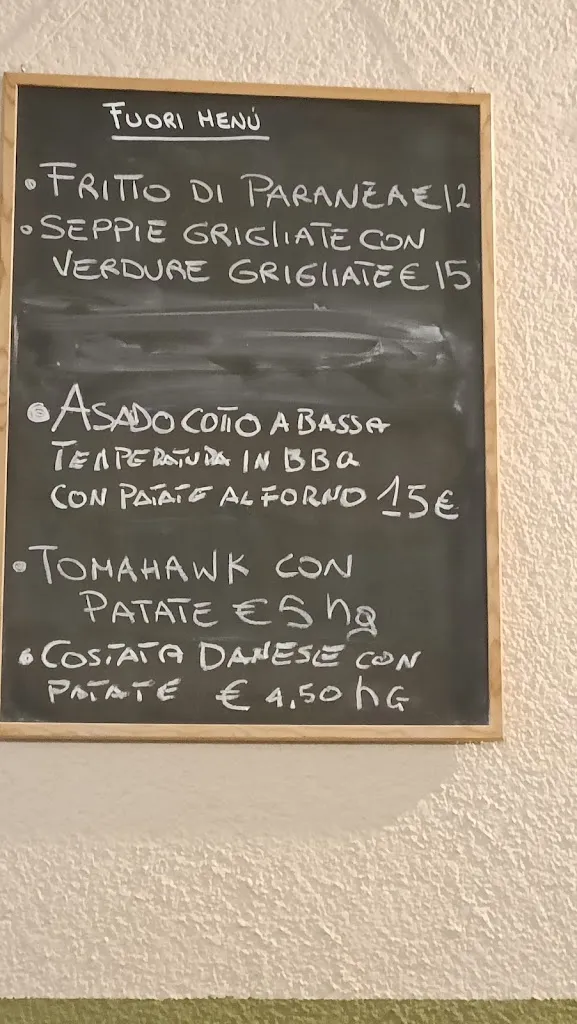 FUORI MENÚ
• FRITTO DI PARANZA € 12
• SEPPIE GRIGLIATE CON
VERDURE GRIGLIATE € 15
• ASADO COTTO A BASSA
TEMPERATURA IN BBQ
CON PATATE AL FORNO 15 €
• TOMAHAWK CON
PATATE € 5 hg
• COSTATA DANESE CON
PATATE € 4,50 hG